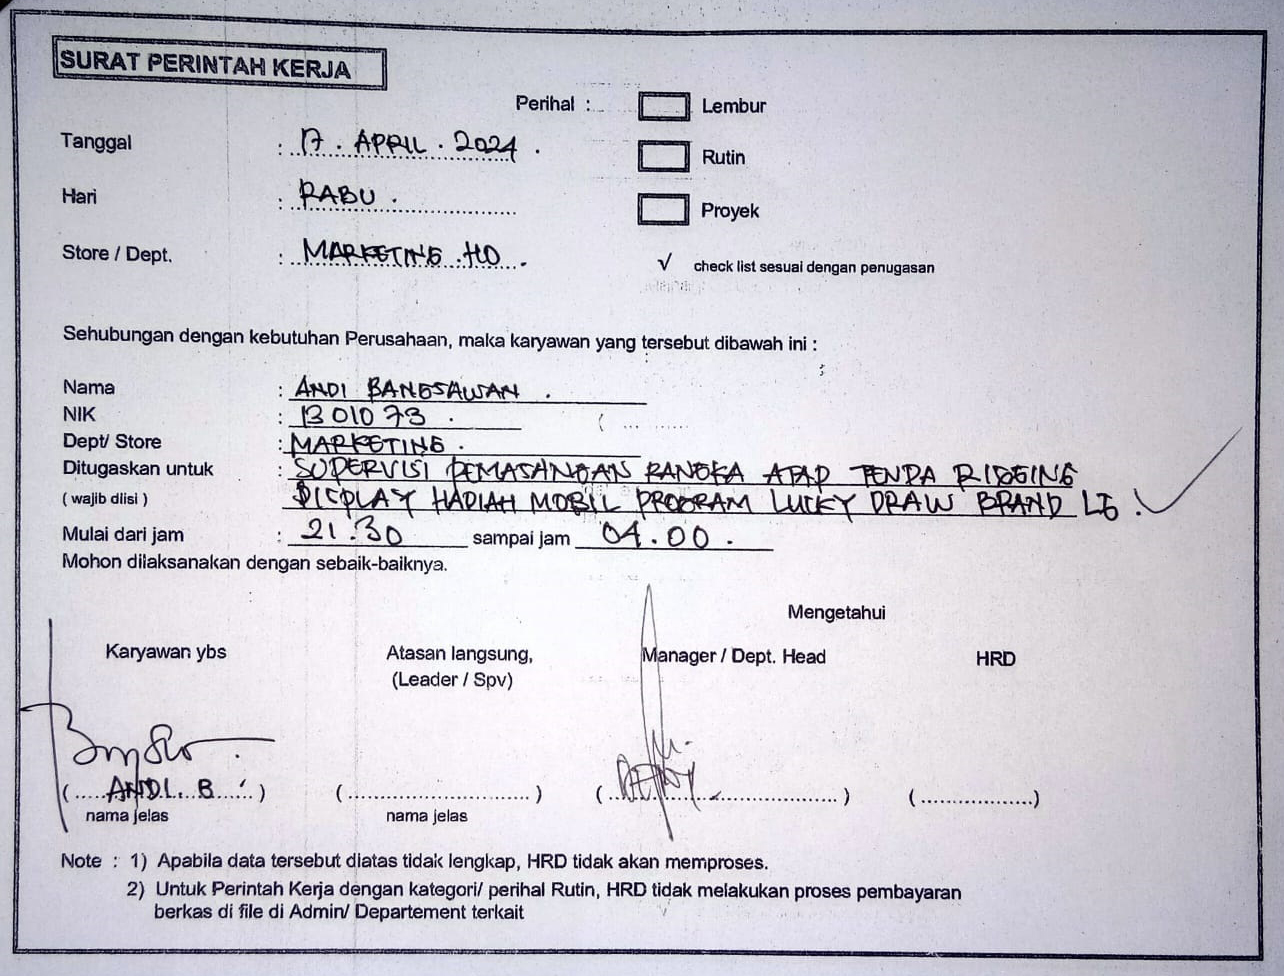 SURAT PERINTAH KERJA
Perihal : Lembur
Tanggal : 17 . APRIL . 2024 .
Rutin
Hari : RABU .
Proyek
Store / Dept. : MARKETING . HO .
√ check list sesuai dengan penugasan
Sehubungan dengan kebutuhan Perusahaan, maka karyawan yang tersebut dibawah ini :
Nama : ANDI BANGSAWAN .
NIK : 1301073 .
Dept/ Store : MARKETING .
Ditugaskan untuk : SUPERVISI PEMASANGAN RANGKA ATAP TENDA RIGGING
( wajib diisi ) DISPLAY HADIAH MOBIL PROGRAM LUCKY DRAW BRAND LG .
Mulai dari jam : 21.30 sampai jam 04.00 .
Mohon dilaksanakan dengan sebaik-baiknya.
Mengetahui
Karyawan ybs Atasan langsung, Manager / Dept. Head HRD
(Leader / Spv)
(.....ANDI. B....) (..............................) (..............................) (..................)
nama jelas nama jelas
Note : 1) Apabila data tersebut diatas tidak lengkap, HRD tidak akan memproses.
2) Untuk Perintah Kerja dengan kategori/ perihal Rutin, HRD tidak melakukan proses pembayaran
berkas di file di Admin/ Departement terkait